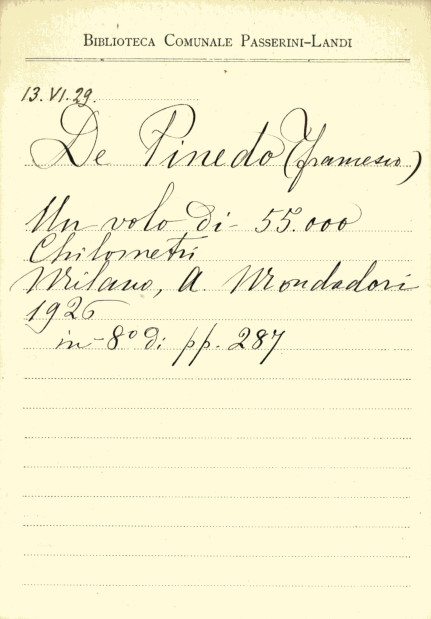 BIBLIOTECA COMUNALE PASSERINI-LANDI
13.VI.29.
De Pinedo (Francesco)
Un volo di 55.000
Chilometri
Milano, A. Mondadori
1926
in-8° di pp. 287